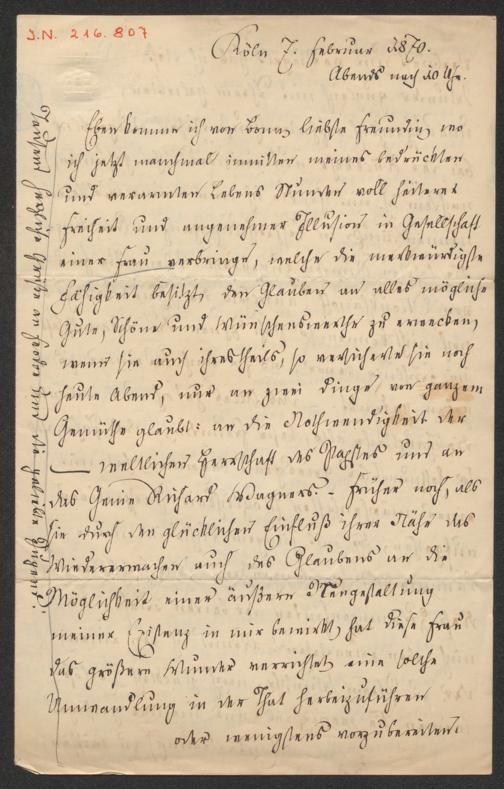 I.N. 216.807
Köln 7. Februar 1870.
Abends nach 10 Uhr.
Eben komme ich von Bonn, liebste Freundin, wo
ich jetzt manchmal inmitten meines bedrückten
und verarmten Lebens Stunden voll heiterer
Freiheit und angenehmer Illusion in Gesellschaft
einer Frau verbringe, welche die merkwürdigste
Fähigkeit besitzt, den Glauben an alles mögliche
Gute, Schöne und Wünschenswerthe zu erwecken,
wenn sie auch ihrestheils, so versicherte sie noch
heute Abend, nur an zwei Dinge von ganzem
Gemüthe glaubt: an die Nothwendigkeit der
weltlichen Herrschaft des Papstes und an
das Genie Richard Wagners. - Früher noch, als
sie durch den glücklichen Einfluß ihrer Nähe das
Wiedererwachen auch des Glaubens an die
Möglichkeit einer äußern Neugestaltung
meiner Existenz in mir bewirkt, hat diese Frau
das größere Wunder verrichtet eine solche
Umwandlung in der That herbeizuführen
oder wenigstens vorzubereiten.
Tausend herzliche Grüße an und die